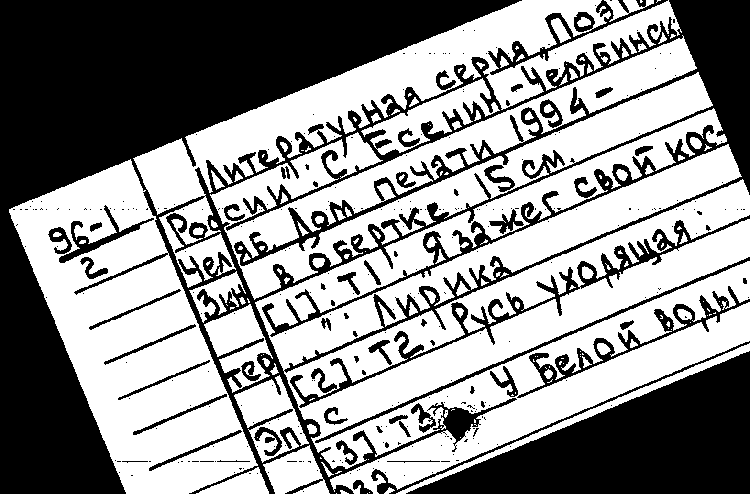 Литературная серия „Поэты
России": С. Есенин.-Челябинск:
96-1
2
Челяб. Дом печати 1994-
3кн в обертке; 15 см.
[1]: Т1: „Я зажег свой кос-
тер...": Лирика
[2]: Т2: Русь уходящая:
Эпос
[3]: Т3 : У белой воды: